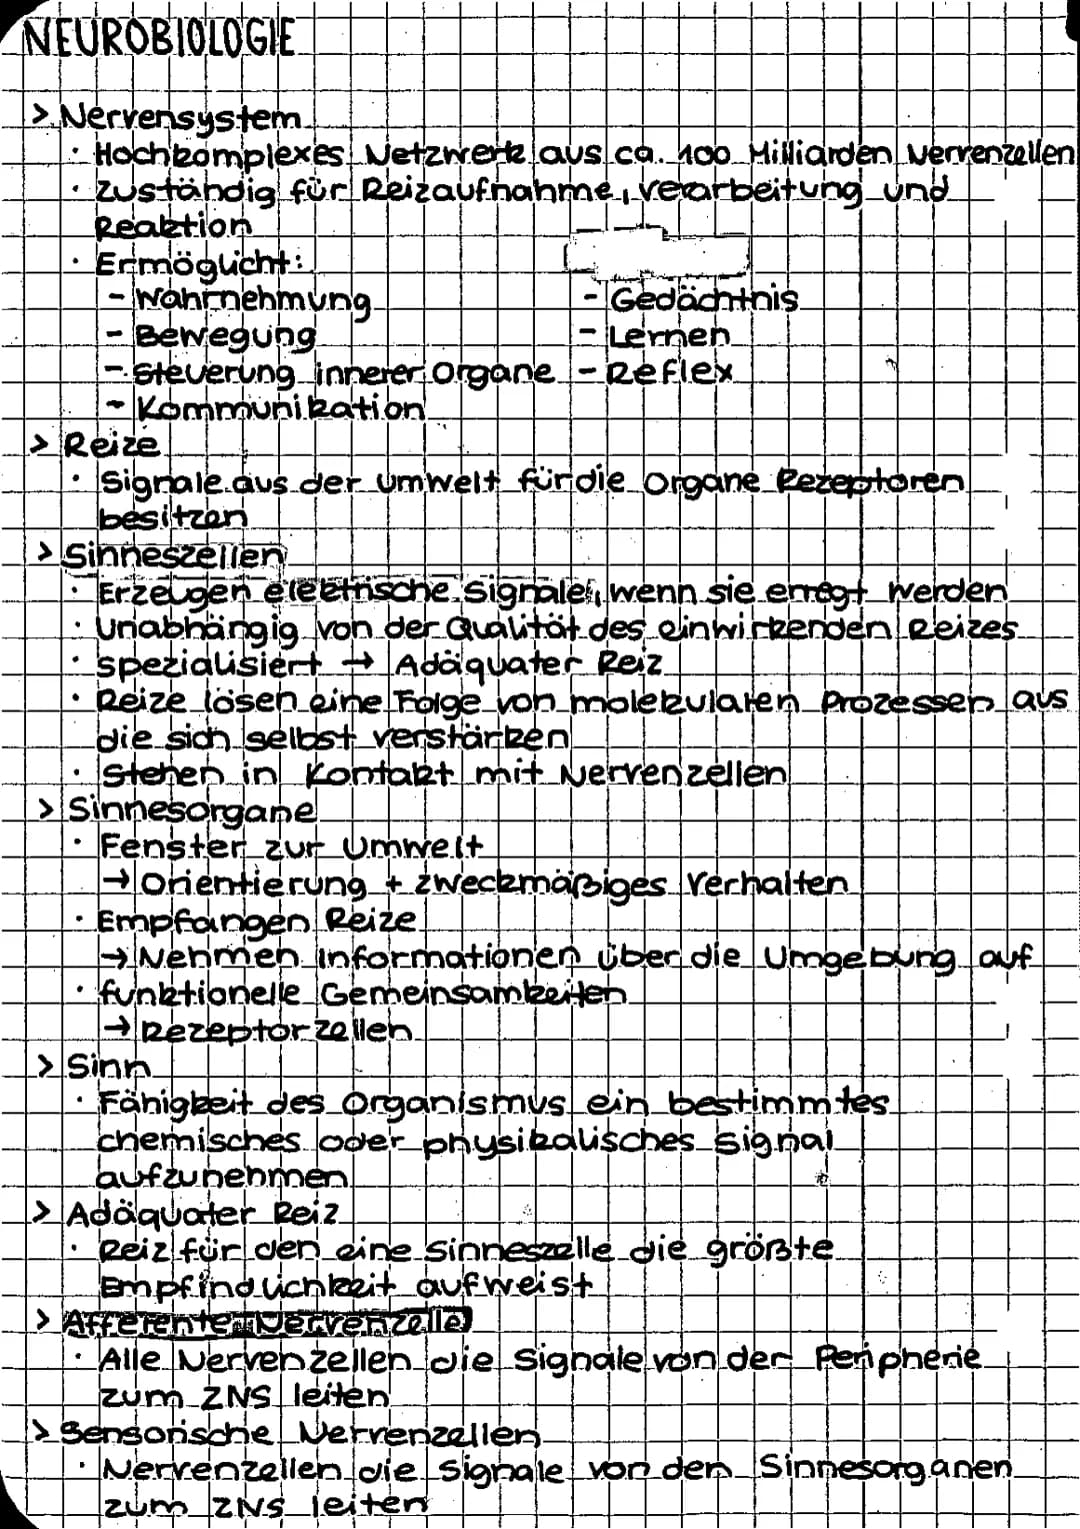 NEUROBIOLOGIE
> Nervensystem
· Hochkomplexes Netzwerk aus ca. 100 Milliarden Nervenzellen
· zuständig für Reizaufnahme, verarbeitung und
Reaktion
· Ermöglicht:
- Wahrnehmung - Gedächtnis
- Bewegung - Lernen
- Steuerung innerer Organe - Reflex
- Kommunikation
> Reize
· Signale aus der Umwelt für die Organe Rezeptoren
besitzen
> Sinneszellen
· Erzeugen elektrische Signale, wenn sie erregt werden
· Unabhängig von der Qualität des einwirkenden Reizes
· spezialisiert → Adäquater Reiz
· Reize lösen eine Folge von molekularen Prozessen aus
die sich selbst verstärken
· Stehen in Kontakt mit Nervenzellen
> Sinnesorgane
· Fenster zur Umwelt
→ Orientierung + zweckmäßiges Verhalten
· Empfangen Reize
→ Nehmen Informationen über die Umgebung auf
· funktionelle Gemeinsamkeiten
→ Rezeptorzellen
> Sinn
· Fähigkeit des Organismus ein bestimmtes
chemisches oder physikalisches Signal
aufzunehmen
> Adäquater Reiz
· Reiz für den eine Sinneszelle die größte
Empfindlichkeit aufweist
> Afferente Nervenzelle
· Alle Nervenzellen die Signale von der Peripherie
zum ZNS leiten
> Sensorische Nervenzellen
· Nervenzellen die Signale von den Sinnesorganen
zum ZNS leiten